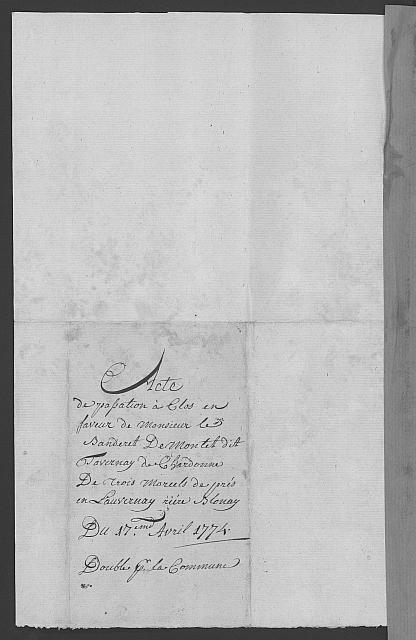 Acte
de passation à Clos en
faveur de Monsieur le
Banderet De Montet dit
Tavernay de Chardonne
De trois Morcels de prés
en Lauvernay rière Blonay
Du 17.eme Avril 1774
Double pr. la Commune